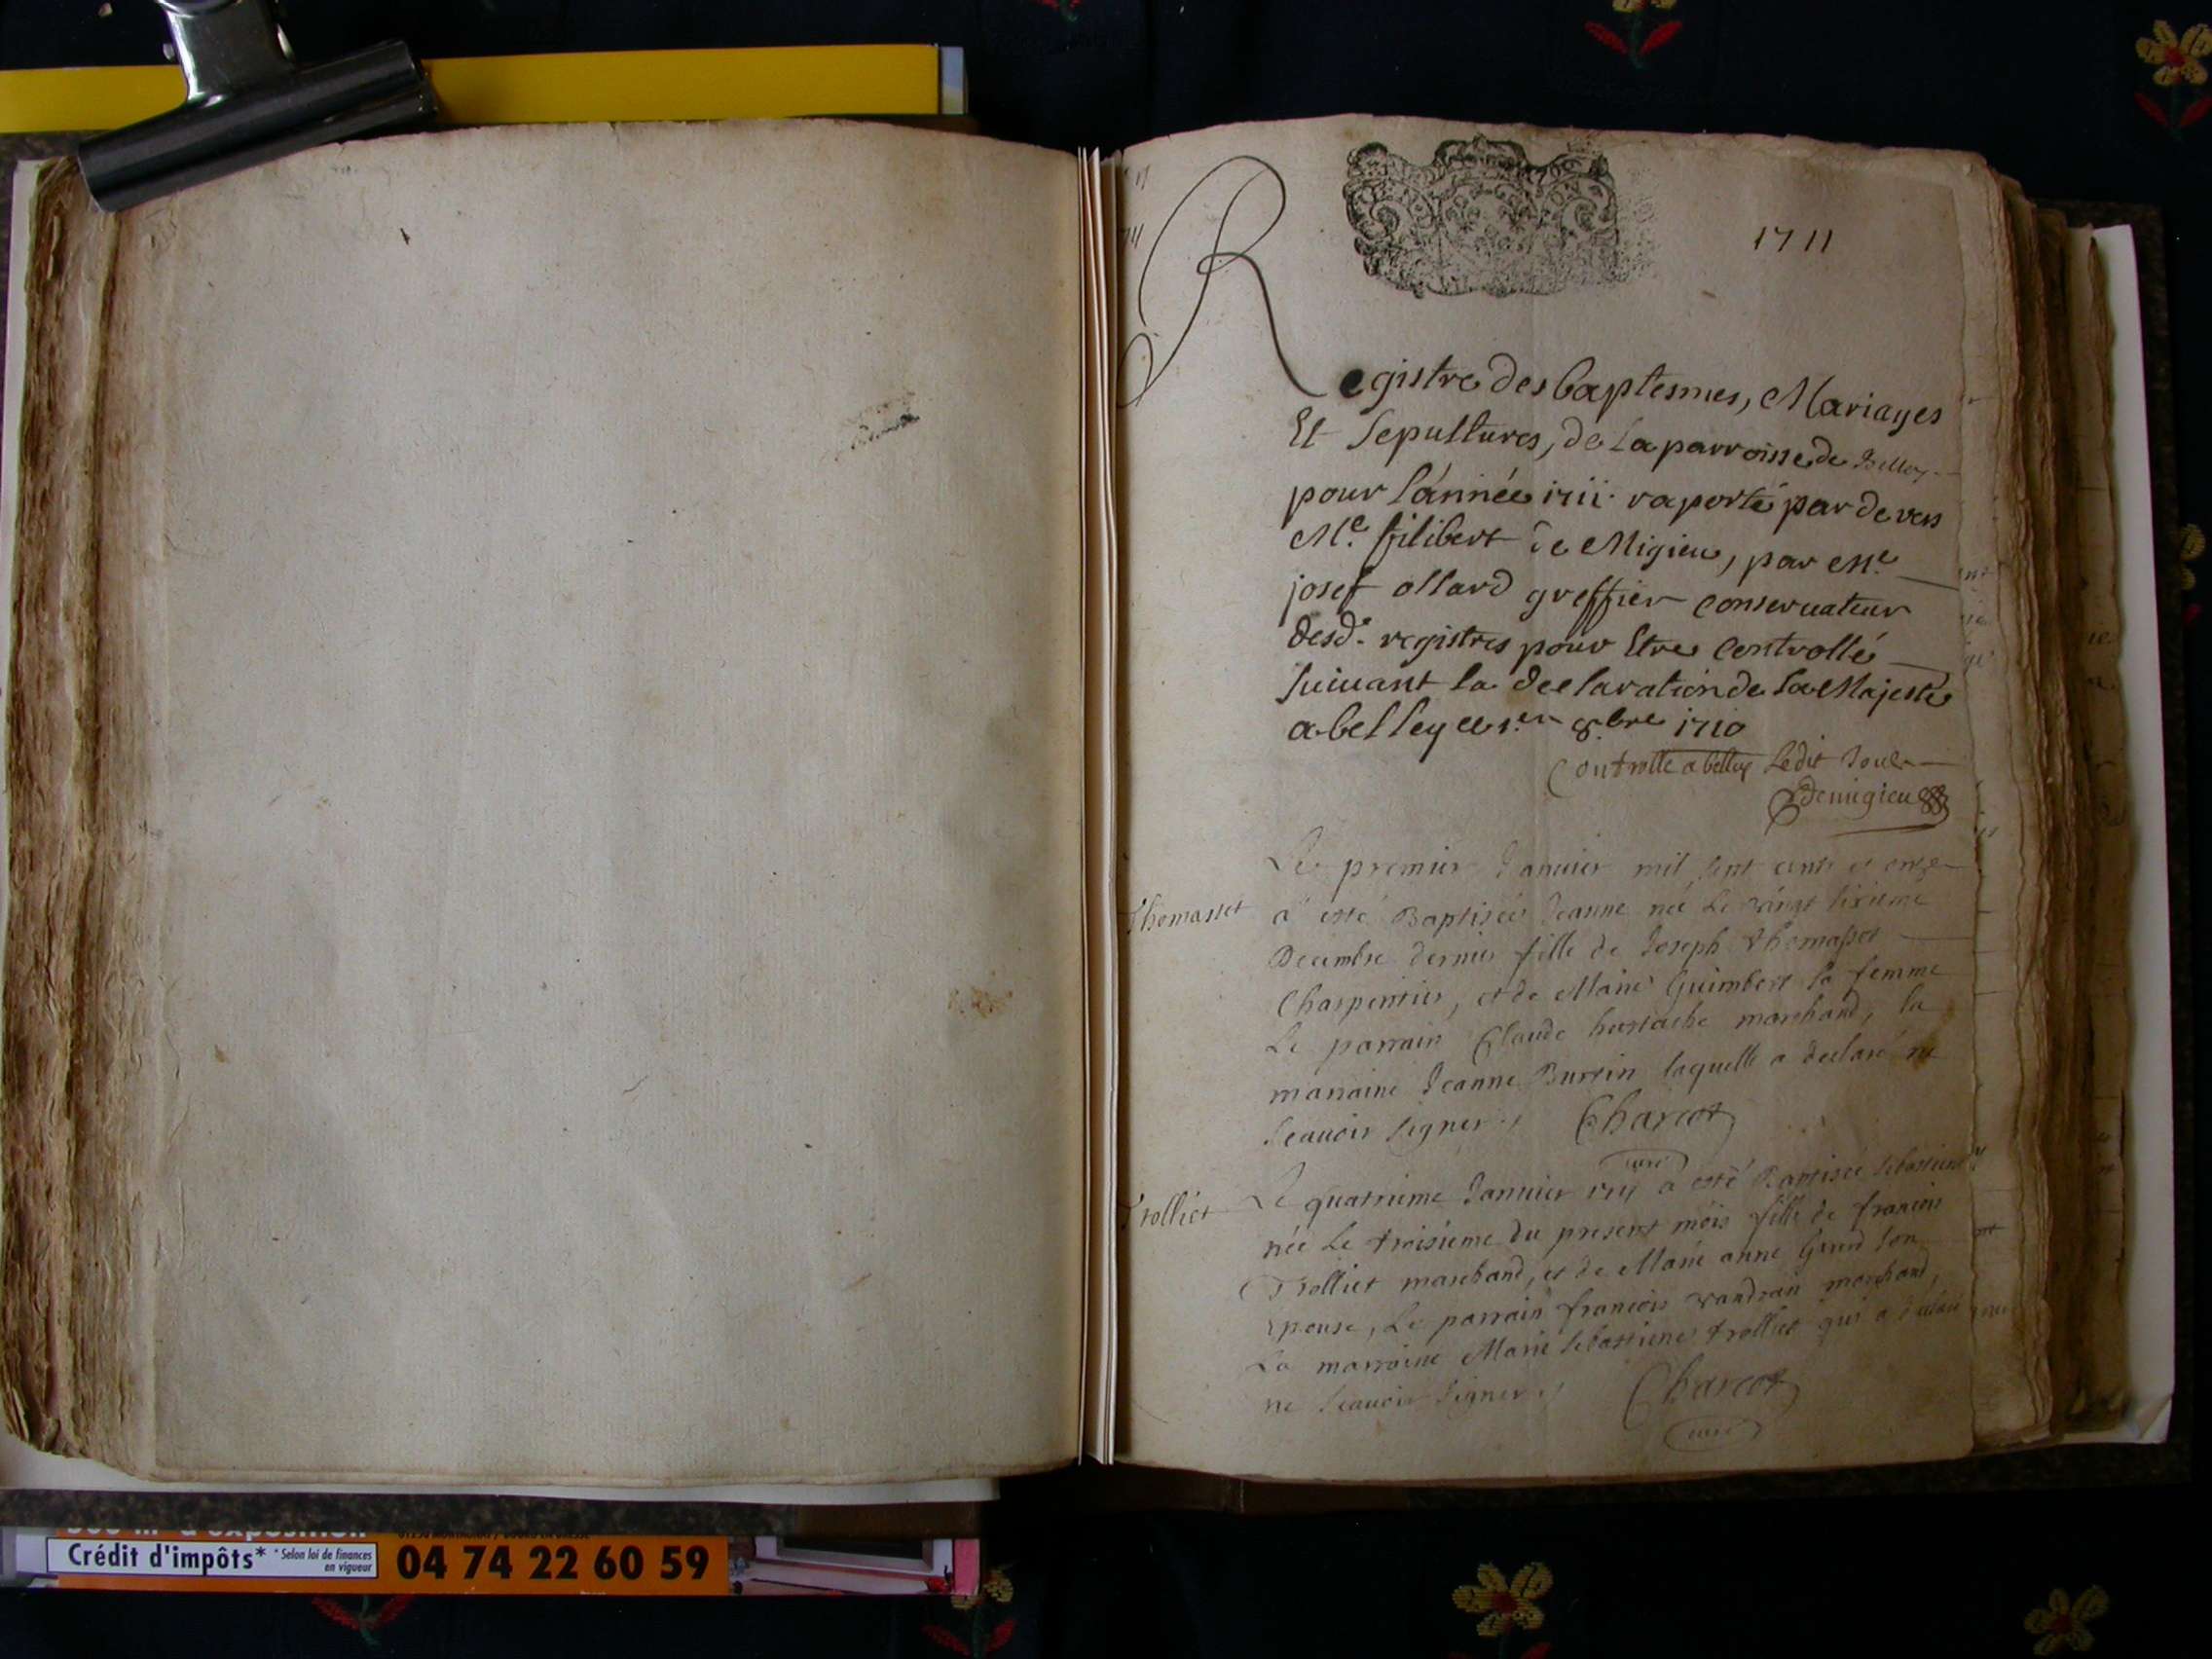 1711
Registre des baptesmes, Mariages
Et Sepultures, de la parroisse de Belley
pour l'année 1711 raporté par devers
Me. filibert de Migieu, par Me.
josef ollard greffier conservateur
desd. registres pour Etre controllé
suivant la declaration de sa Majesté
a belley ce 1.er 8.bre 1710
Controllé a belley ledit Jour
Demigieu
Le premier Janvier mil sept cents et onze
Thomasset
a esté Baptisée Jeanne née le vingt sixieme
Decembre dernier fille de Joseph Thomasset
Charpentier, et de Marie Guimbert sa femme
Le parrain Claude hustache marchand, la
marraine Jeanne Burtin laquelle a declaré ne
sçavoir signer. Charcot
curé
Trolliet
Le quatrieme Janvier 1711 a esté Baptisée sebastiene
née le troisieme du present mois fille de francois
Trolliet marchand, et de Marie anne son
epouse, Le parrain francois marchand,
La marraine Marie sebastiene trolliet qui a declaré
ne sçavoir signer. Charcot
curé
Crédit d'impôts* *Selon loi de finances
en vigueur
04 74 22 60 59